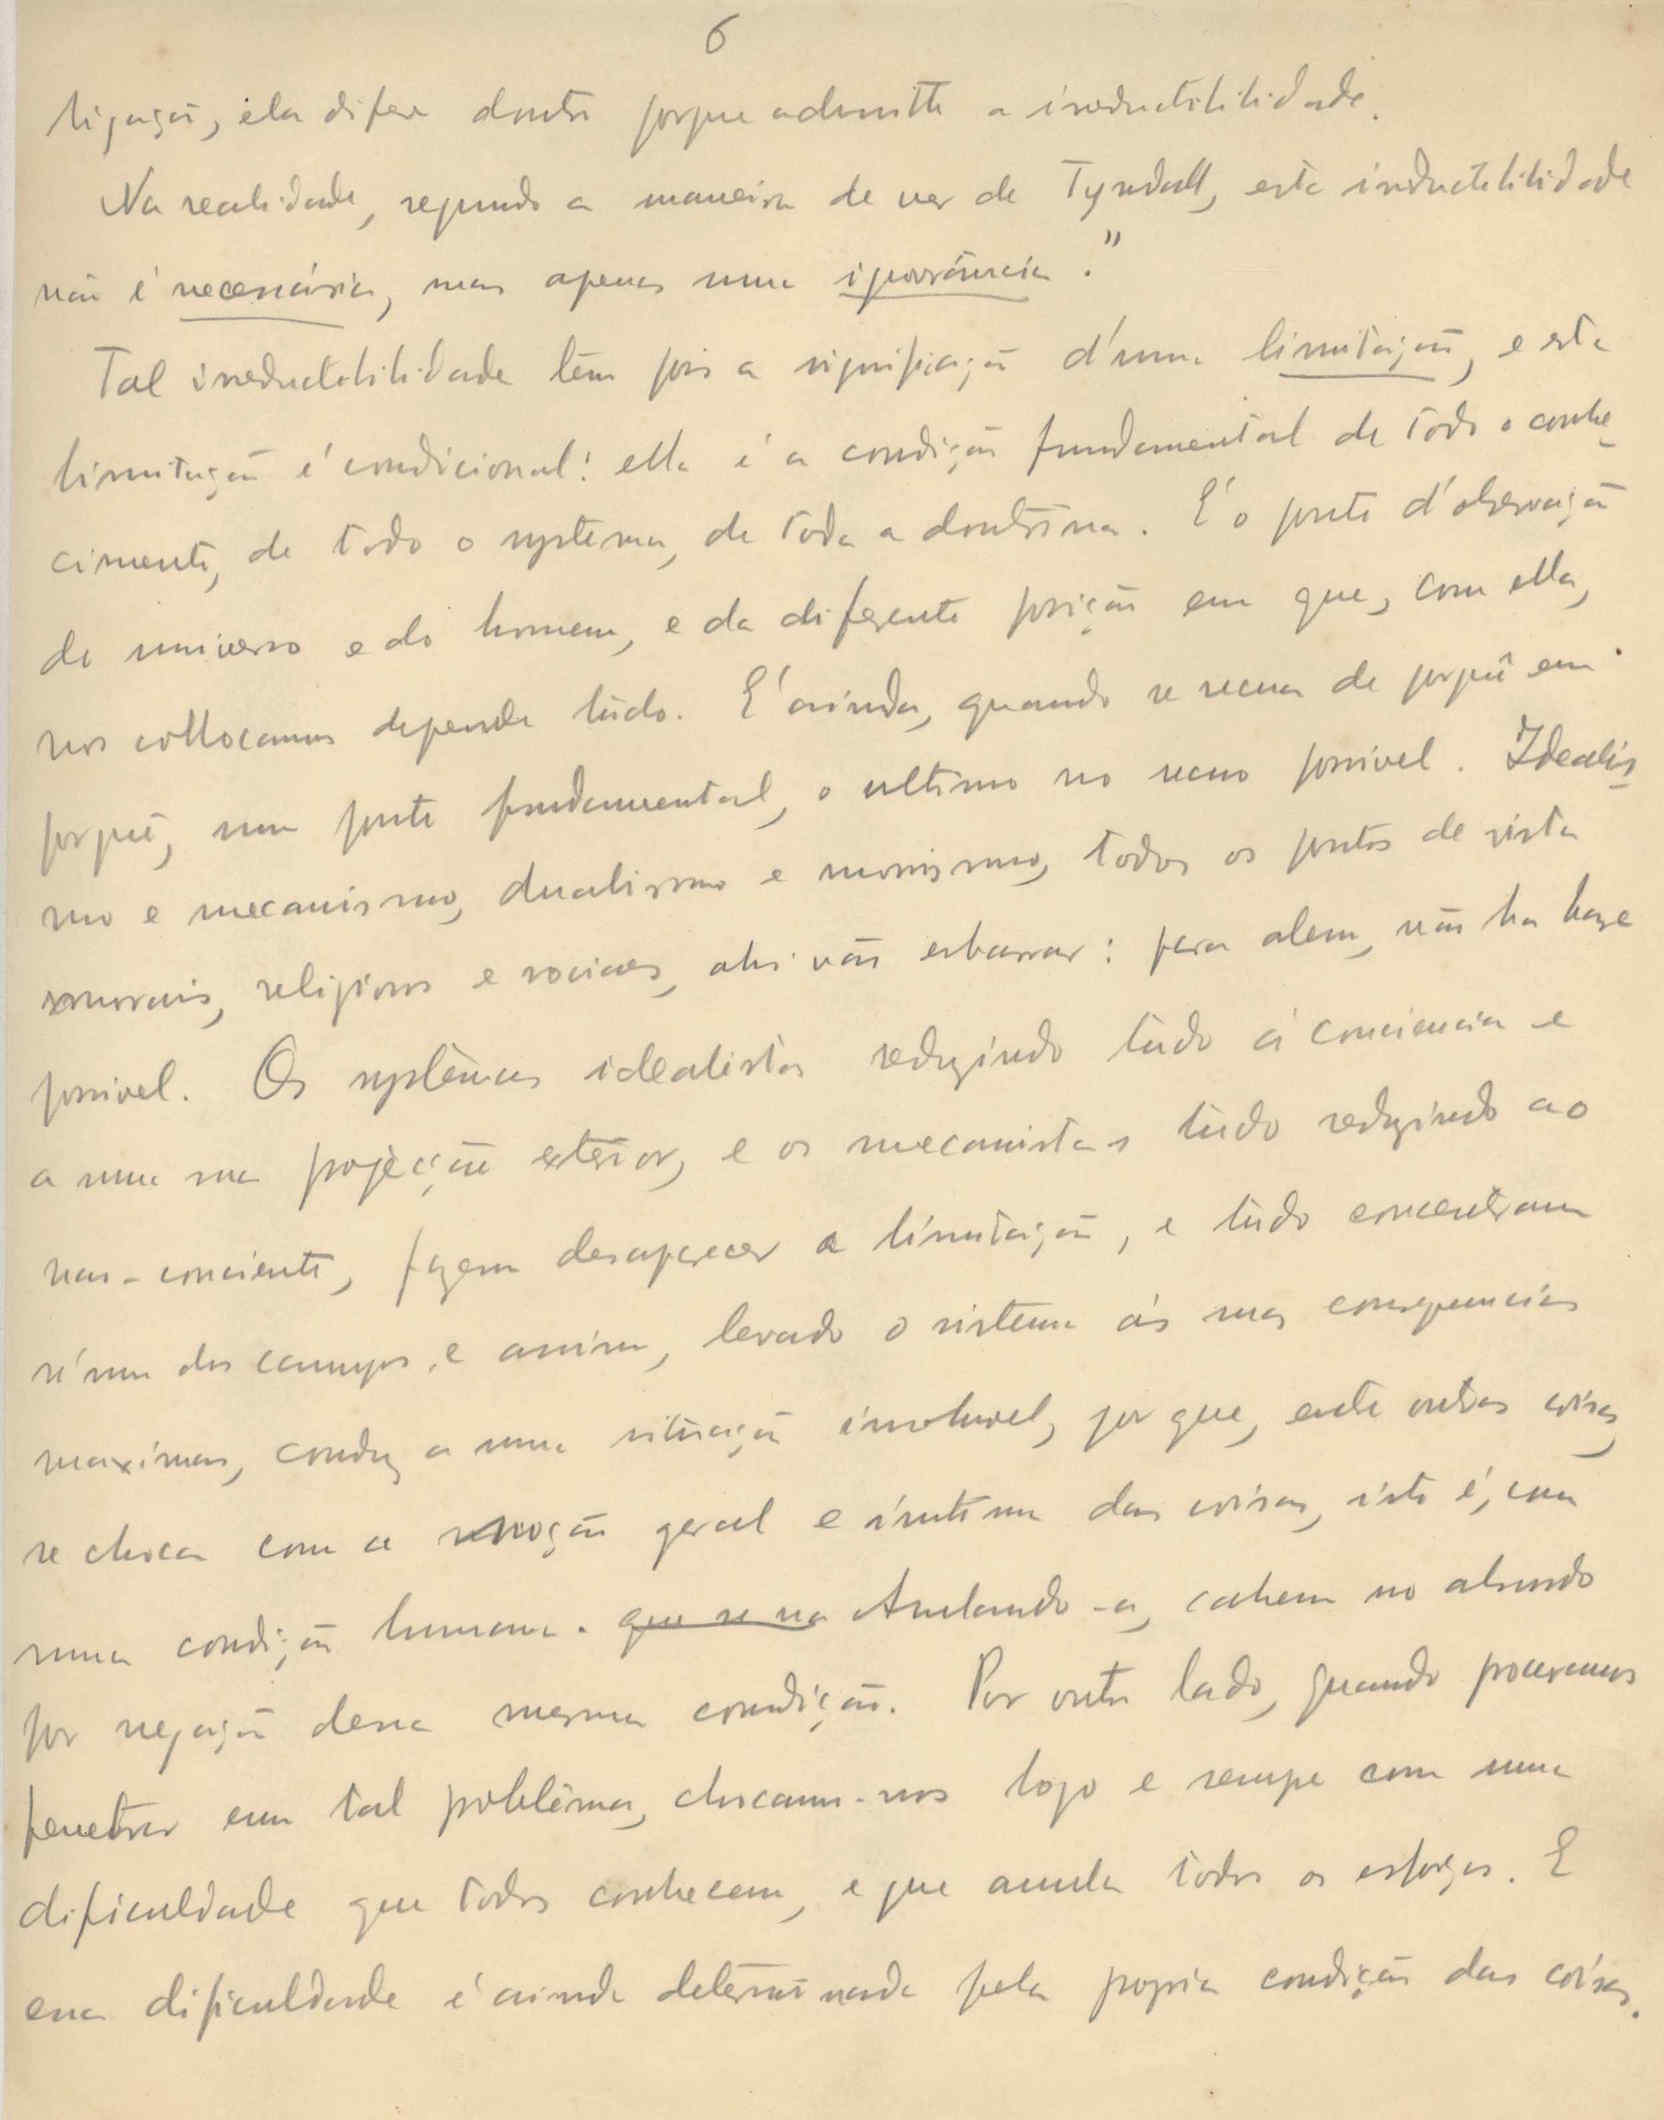 6
ligação, ela difere doutra porque admitte a ireductibilidade.
Na realidade, segundo a maneira de ver de Tyndall, esta ireductibilidade
não é necessária, mas apenas uma ignorância."
Tal ireductibilidade têm pois a significação d'uma limitação, e esta
limitação é condicional: ella é a condição fundamental de todo o conhe-
cimento, de todo o systema, de toda a doutrina. É o ponto d'observação
do universo e do homem, e da diferente posição em que, com ella,
nos collocamos depende tudo. É ainda, quando se recua de porquê em
porquê, um ponto fundamental, o ultimo no recuo possivel. Idealis-
mo e mecanismo, dualismo e monismo, todos os pontos de vista
morais, religiosos e sociaes, ahi vão esbarrar: para alem, não ha base
possivel. Os systêmas idealistas reduzindo tudo á conciencia e
a uma sua projecção exterior, e os mecanistas tudo reduzindo ao
nao-conciente, fazem desaparecer a limitação, e tudo concentram
só num dos campos, e assim, levado o sistema ás suas consequencias
maximas, conduz a uma situação insoluvel, por que, entre outras coisas,
se choca com a noção geral e intima das coisas, isto é, com
uma condição humana. que se na Anulando-a, cahem no absurdo
por negação dessa mesma condição. Por outro lado, quando procuramos
penetrar em tal problêma, chocamo-nos logo e sempre com uma
dificuldade que todos conhecem, e que anula todos os esforços. E
essa dificuldade é ainda determinada pela propria condição das coisas.